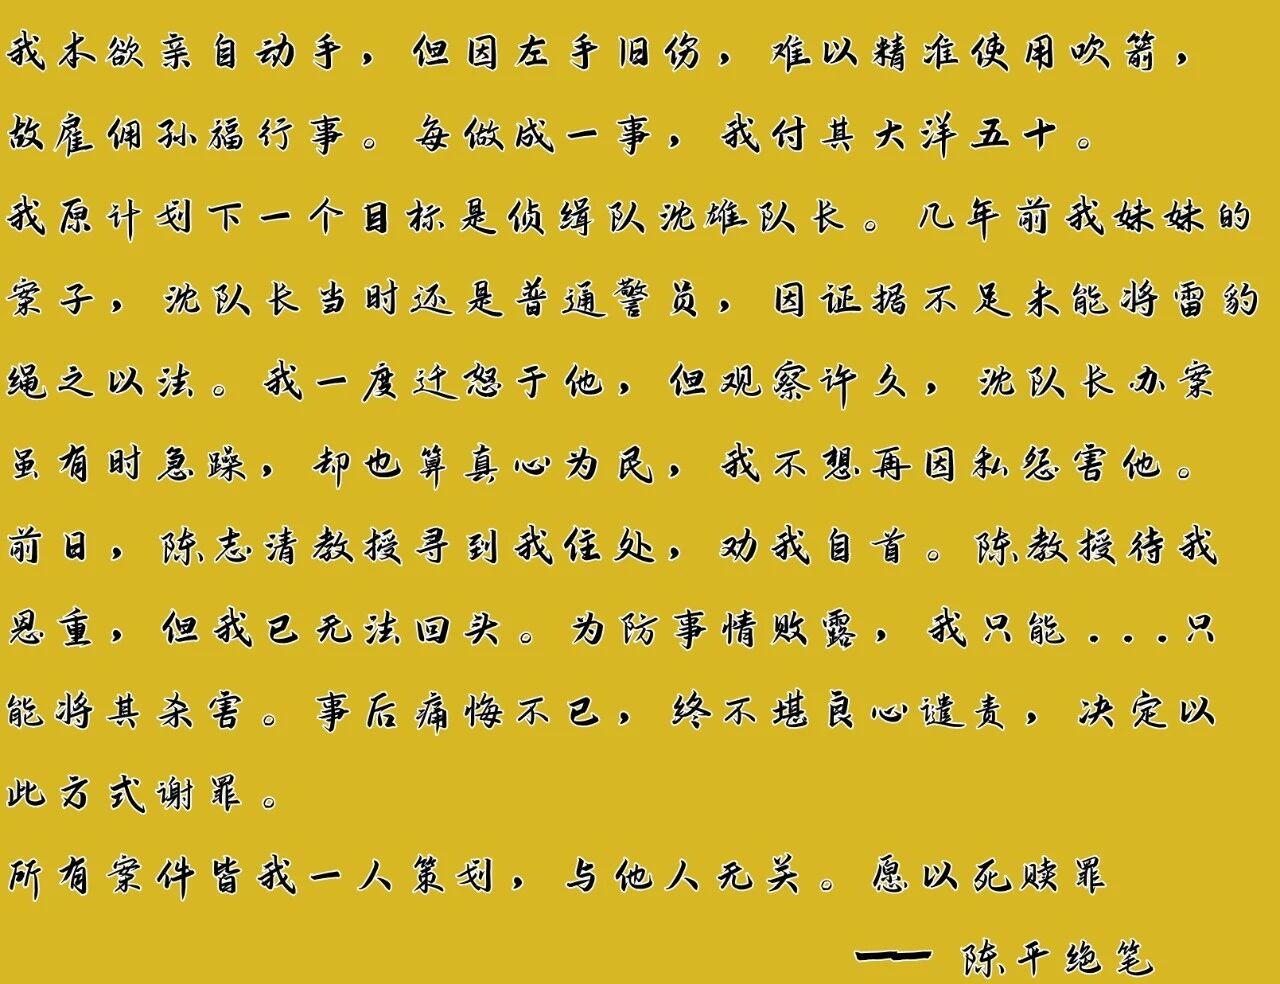 我本欲亲自动手，但因左手旧伤，难以精准使用吹箭，
故雇佣孙福行事。每做成一事，我付其大洋五十。
我原计划下一个目标是侦缉队沈雄队长。几年前我妹妹的
案子，沈队长当时还是普通警员，因证据不足未能将雷豹
绳之以法。我一度迁怒于他，但观察许久，沈队长办案
虽有时急躁，却也算真心为民，我不想再因私怨害他。
前日，陈志清教授寻到我住处，劝我自首。陈教授待我
恩重，但我已无法回头。为防事情败露，我只能...只
能将其杀害。事后痛悔不已，终不堪良心谴责，决定以
此方式谢罪。
所有案件皆我一人策划，与他人无关。愿以死赎罪
—— 陈平绝笔